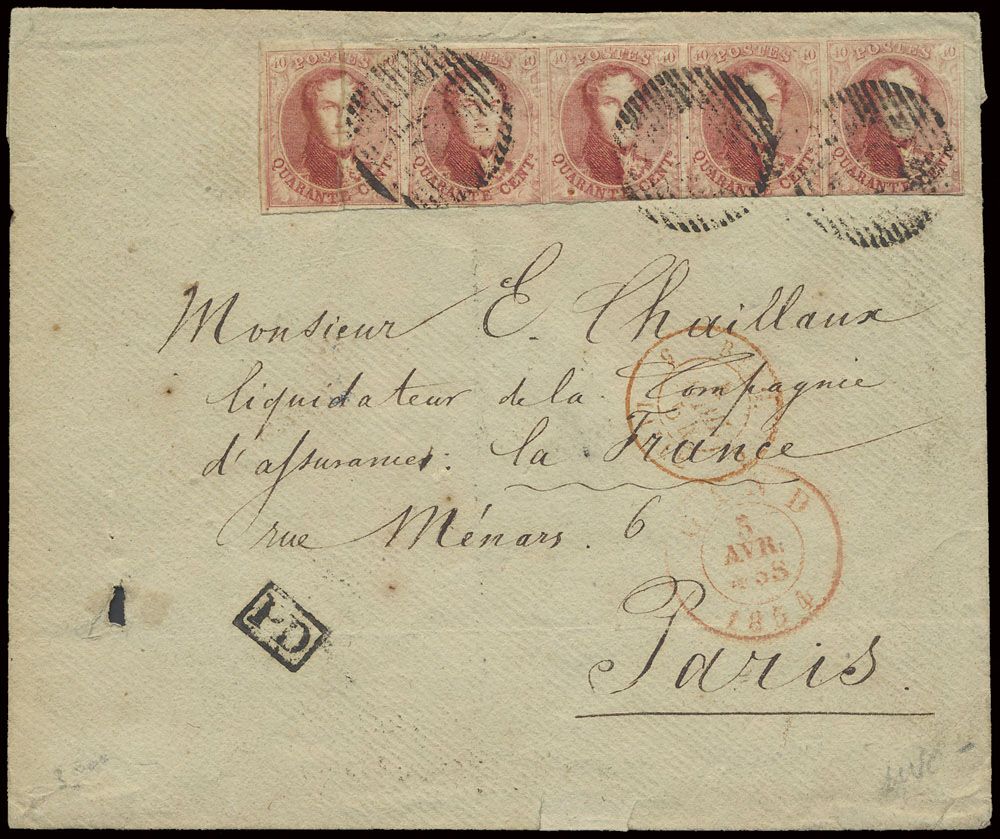 40 POSTES 40 40 POSTES 40 40 POSTES 40 40 POSTES 40 40 POSTES 40
QUARANTE CENT. QUARANTE CENT. QUARANTE CENT. QUARANTE CENT. QUARANTE CENT.
Monsieur E. Chaillaux
liquidateur de la Compagnie
d'assurances. la France
rue Ménars. 6
GAND
AVR.
1854
PD
Paris.